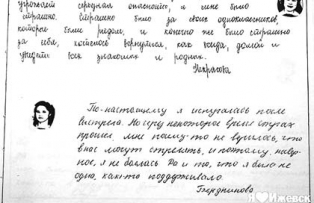 угрожает серьёзная опасность, и мне было
страшно. Страшно было за своих одноклассников,
которые были рядом, и конечно же было страшно
за себя, хотелось вернуться, как всегда, домой и
увидеть всех знакомых и родных.
Некрасова
По-настоящему я испугалась после
выстрела. Но через некоторое время страх
прошёл мне почему-то не верилось, что
в нас могут стрелять, и поэтому, навер-
ное, я не боялась Да и то, что я была не
одна, как-то поддерживало
Я ИЖЕВСК